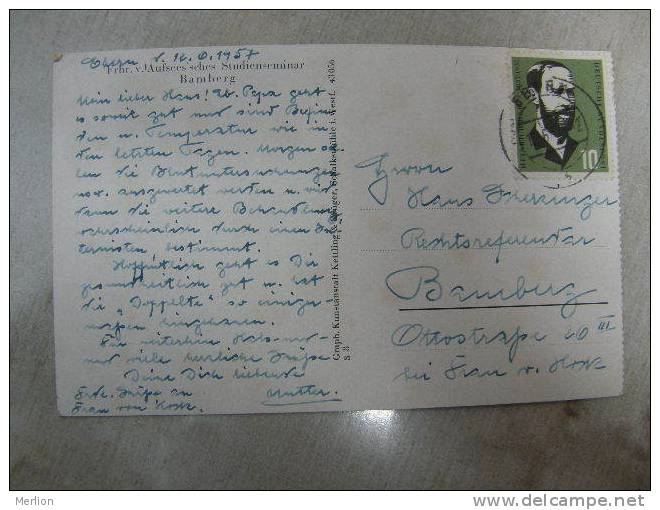 Ebern, d. 1957
Frhr. v. Aufsees'sches Studienseminar
Bamberg
Mein lieber Hans! Lb. Papa geht
es soweit gut nur sind Befin-
den u. Temperatur wie in
den letzten Tagen. Morgen sol-
len die Blutuntersuchungen
usw. ausgewertet werden u. wird
dann die weitere Behandlung
wahrscheinlich durch einen In-
ternisten bestimmt.
Hoffentlich geht es Dir
gesundheitlich gut u. hat
die "Doppelte" so einiger-
maßen hingehauen.
Für weiterhin
nur viele herzliche Grüße
Deine Dich liebende
Mutter.
Grüße an
Frau von
Graph. Kunstanstalt Kettling & Krüger, Schalksmühle i. Westf. 43056
S 3
DEUTSCHE BUNDESPOST
HEINRICH HERTZ
10
Herrn
Hans
Rechtsreferendar
Bamberg
Ottostraße 20 III
bei Frau v.
Merlion
delcampe.net